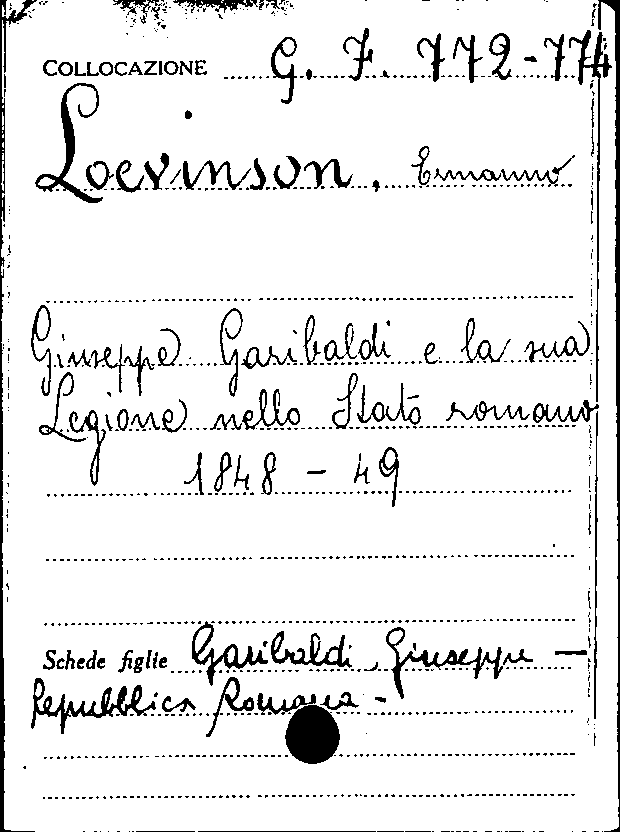 COLLOCAZIONE G. F. 772-774
Loevinson, Ermanno
Giuseppe Garibaldi e la sua
Legione nello Stato romano
1848 - 49
Schede figlie Garibaldi Giuseppe —
Repubblica Romana -